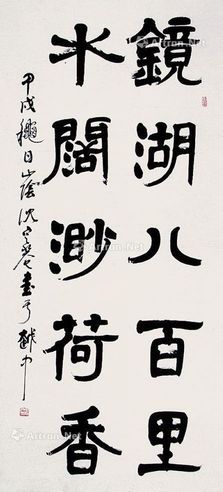 鏡湖八百里
水闊渺荷香
甲戌穐日山陰沈定庵書于越中